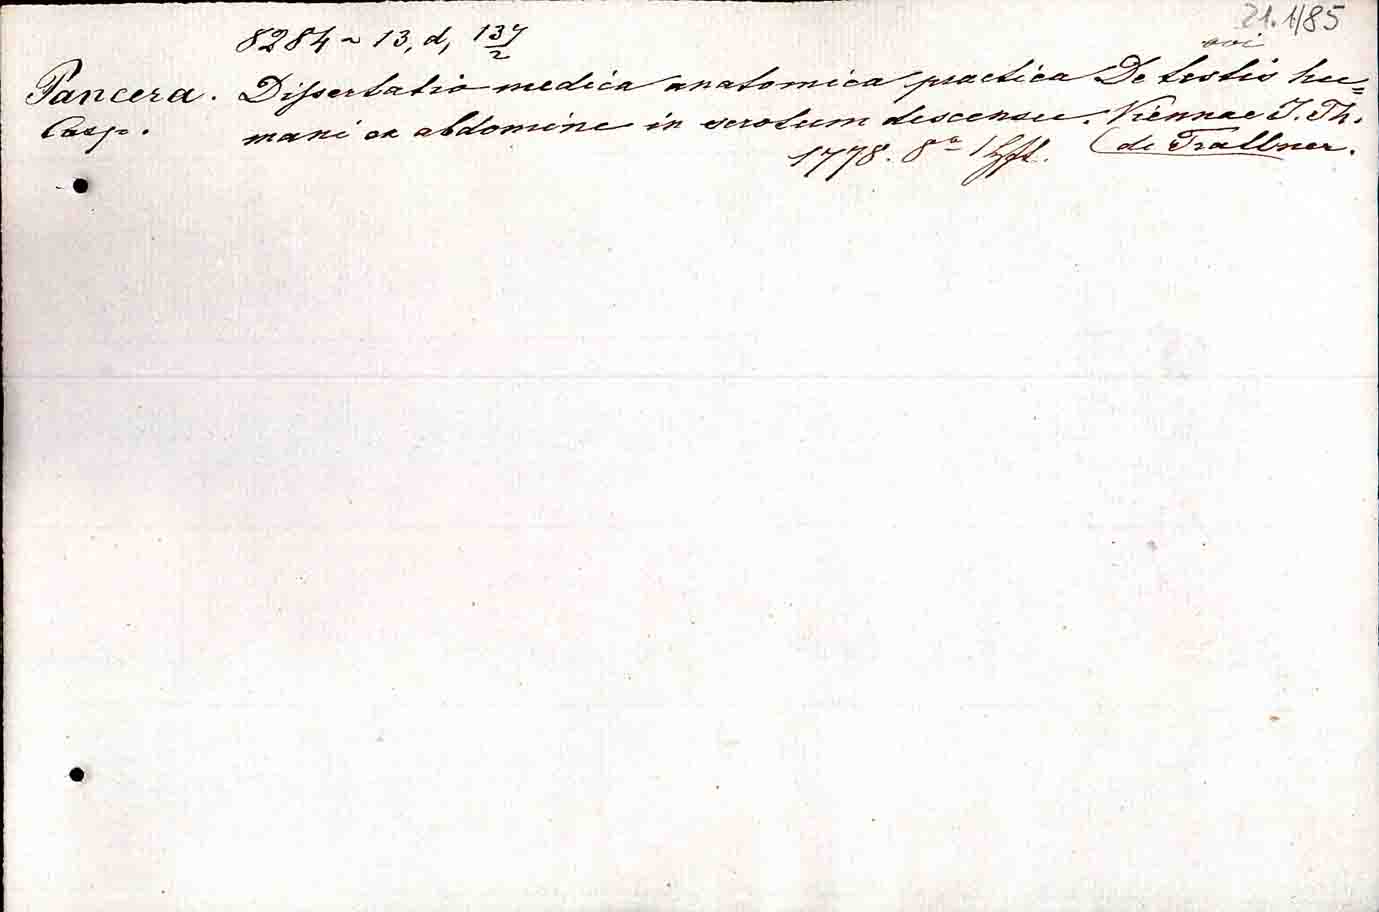 21.1/85
8284 ~ 13, d, 137/2
Pancera. Dissertatio medica anatomica practica De testis hu=
Casp. mani ex abdomine in scrotum descensu. Viennae J. Th.
1778. 8° 1 (de Trattner.